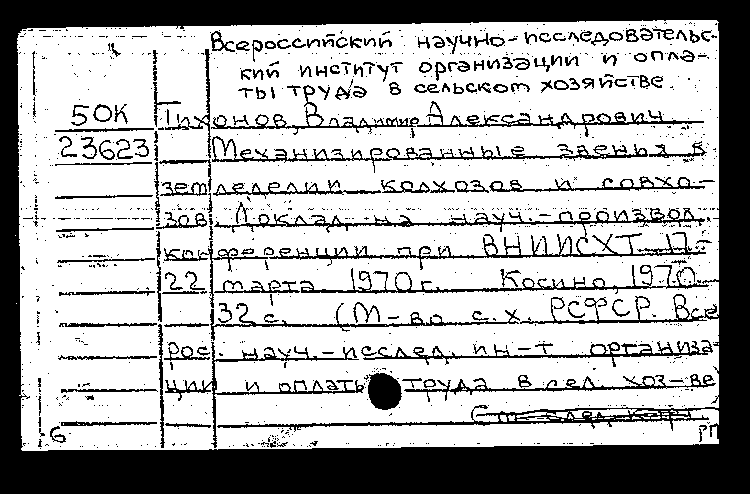 Всероссийский научно-исследовательс-
кий институт организации и опла-
ты труда в сельском хозяйстве.
50К Тихонов, Владимир Александрович.
23623 Механизированные звенья в
земледелии колхозов и совхо-
зов. Доклад на науч.-производ.
конференции при ВНИИСХТ 17-
22 марта 1970г. Косино, 1970.
32 с. (М-во с.х. РСФСР. Все
рос. науч.-исслед. ин-т организа-
ции и оплаты труда в сел. хоз-ве
См. след. карт.
6 РП